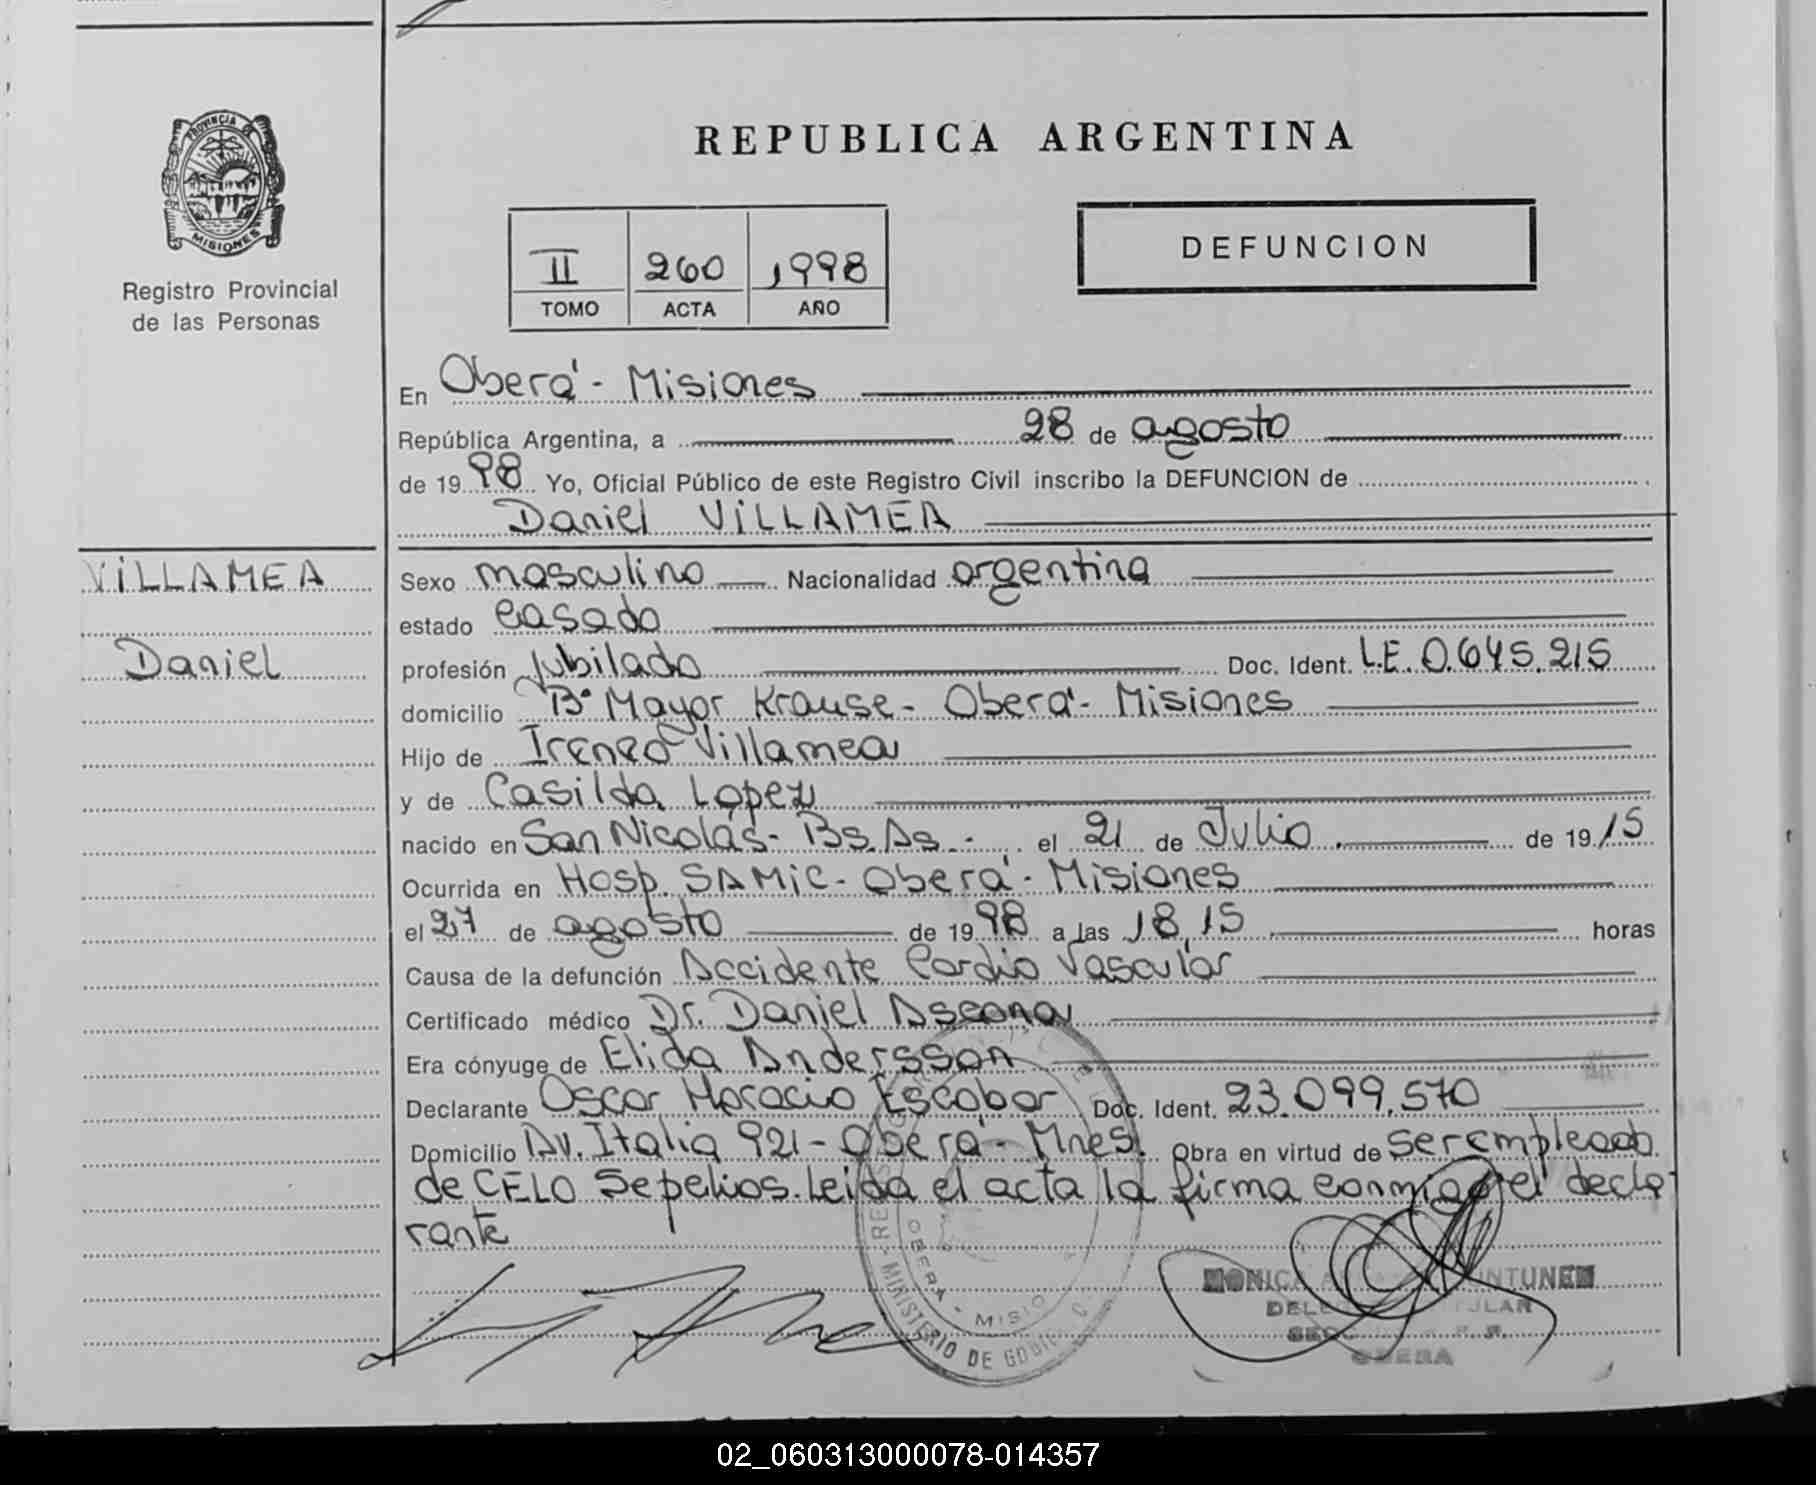 PROVINCIA DE
MISIONES
Registro Provincial
de las Personas
REPUBLICA ARGENTINA
II 260 1998
TOMO ACTA AÑO
DEFUNCION
En Oberá - Misiones
República Argentina, a 28 de agosto
de 1998 Yo, Oficial Público de este Registro Civil inscribo la DEFUNCION de
Daniel VILLAMEA
VILLAMEA
Daniel
Sexo masculino Nacionalidad argentina
estado casado
profesión jubilado Doc. Ident. L.E. 0.645.215
domicilio Bº Mayor Krause - Oberá - Misiones
Hijo de Ireneo Villamea
y de Casilda Lopez
nacido en San Nicolás - Bs.As. - el 21 de Julio de 1915
Ocurrida en Hosp. SAMIC - Oberá - Misiones
el 27 de agosto de 1998 a las 18,15 horas
Causa de la defunción Accidente Cardio Vascular
Certificado médico Dr. Daniel Ascona
Era cónyuge de Elida Andersson
Declarante Oscar Horacio Escobar Doc. Ident. 23.099.570
Domicilio Av. Italia 921 - Oberá - Mnes. Obra en virtud de ser empleado
de CELO Sepelios. Leida el acta la firma conmigo el decla
rante
MINISTERIO DE
OBERA - MISIO
MONICA
OBERA
02_060313000078-014357